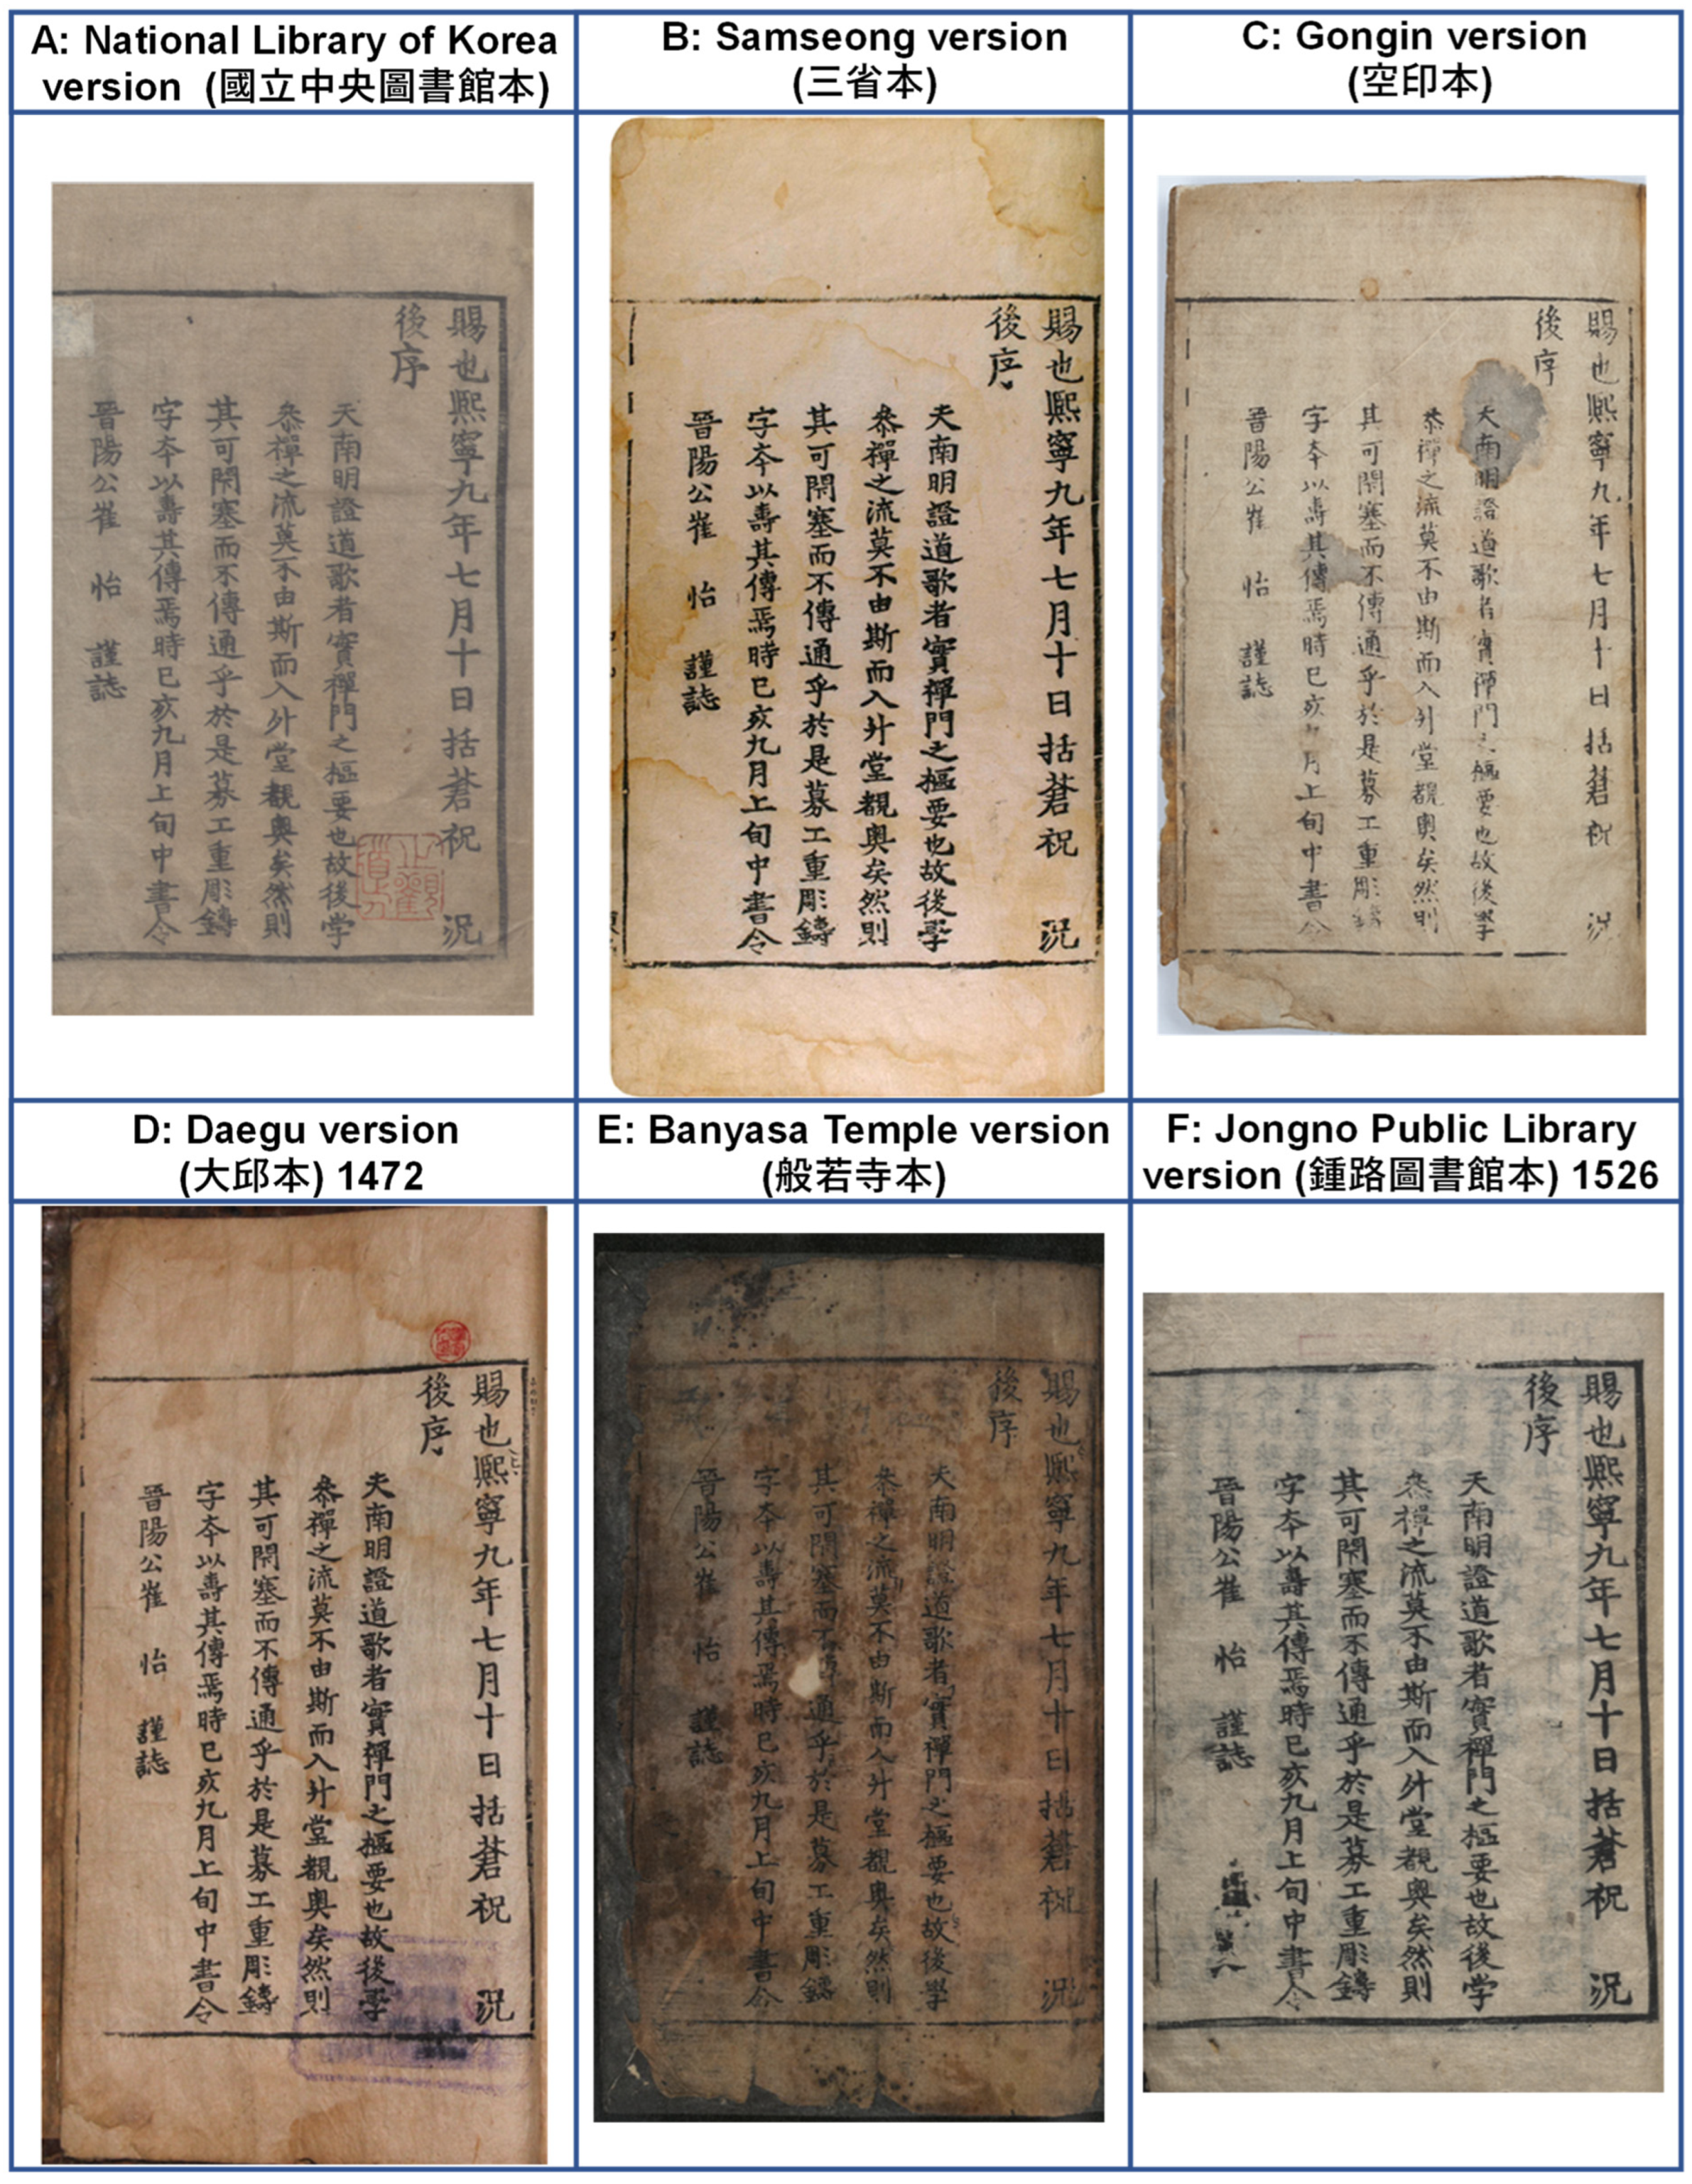 A: National Library of Korea
version (國立中央圖書館本)
賜也熙寧九年七月十日括蒼祝 況
後序
天南明證道歌者實禪門之樞要也故後学
叅禪之流莫不由斯而入升堂覩奥矣然則
其可閇塞而不傳通乎於是募工重彫鑄
字夲以壽其傳焉時已亥九月上旬中書令
晉陽公崔 怡 謹誌
B: Samseong version
(三省本)
賜也熙寧九年七月十日括蒼祝 況
後序
夫南明證道歌者實禪門之樞要也故後學
叅禪之流莫不由斯而入升堂覩奥矣然則
其可閇塞而不傳通乎於是募工重彫鑄
字夲以壽其傳焉時已亥九月上旬中書令
晉陽公崔 怡 謹誌
C: Gongin version
(空印本)
賜也熙寧九年七月十日括蒼祝 況
後序
夫南明證道歌者實禪門之樞要也故後學
叅禪之流莫不由斯而入升堂覩奥矣然則
其可閇塞而不傳通乎於是募工重彫鑄
字夲以壽其傳焉時已亥九月上旬中書令
晉陽公崔 怡 謹誌
D: Daegu version
(大邱本) 1472
賜也熙寧九年七月十日括蒼祝 況
後序
夫南明證道歌者實禪門之樞要也故後學
叅禪之流莫不由斯而入升堂覩奥矣然則
其可閇塞而不傳通乎於是募工重彫鑄
字夲以壽其傳焉時已亥九月上旬中書令
晉陽公崔 怡 謹誌
E: Banyasa Temple version
(般若寺本)
賜也熙寧九年七月十日括蒼祝 況
後序
夫南明證道歌者實禪門之樞要也故後學
叅禪之流莫不由斯而入升堂覩奥矣然則
其可閇塞而不通乎於是募工重彫鑄
字夲以壽其傳焉時已亥九月上旬中書令
晉陽公崔 怡 謹誌
F: Jongno Public Library
version (鍾路圖書館本) 1526
賜也熙寧九年七月十日括蒼祝 況
後序
天南明證道歌者實禪門之樞要也故後学
叅禪之流莫不由斯而入升堂覩奥矣然則
其可閇塞而不傳通乎於是募工重彫鑄
字夲以壽其傳焉時已亥九月上旬中書令
晉陽公崔 怡 謹誌